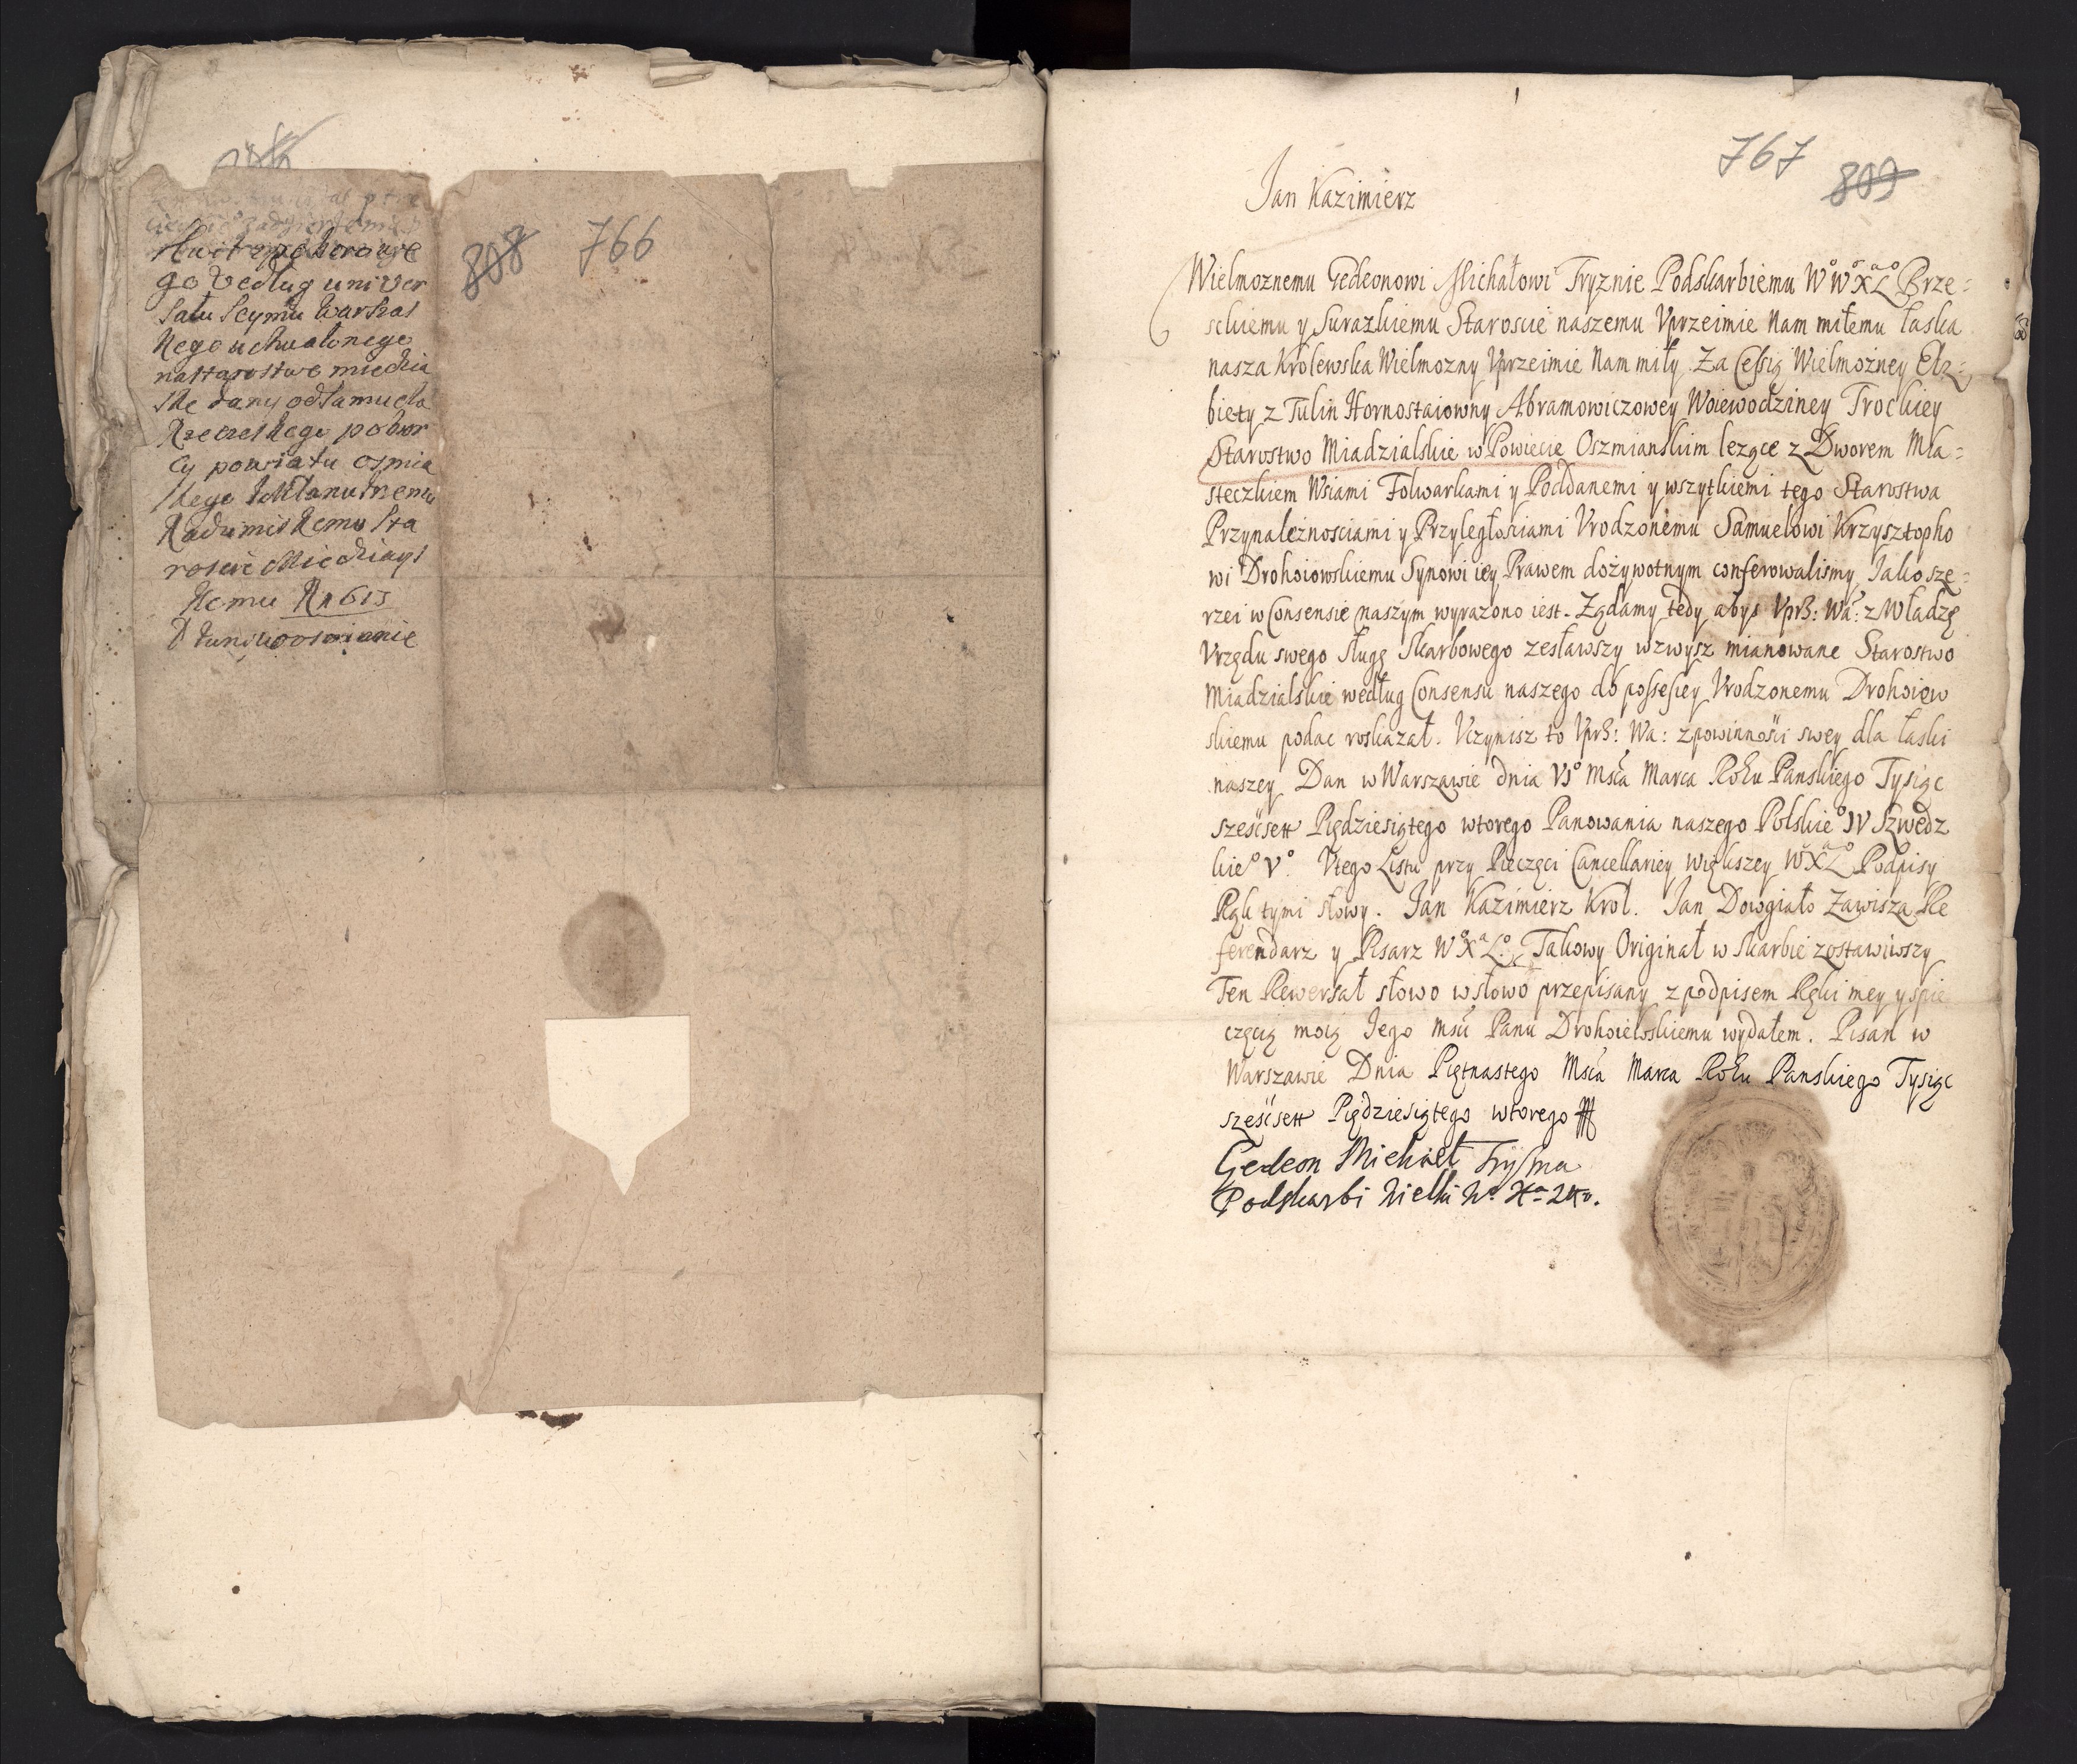 808 766
Kwit z poborowe
go wedlug univer
salu Seymu warszas
kego uchwalonego
nastarostwo miedzia
ske dany odSamuela
pobor
cy powiatu osmia
skego
Radzimiskemu sta
roscie Miedziays
kemu R 1613
767 809
Jan Kazimierz
Wielmoznemu Gedeonowi Michałowi Tryznie Podskarbiemu Wo Wo Xa Lo Brze=
sckiemu y Surazkiemu Staroscie naszemu Vprzeimie Nam miłemu łaska
nasza Krolewska Wielmozny Vprzeimie Nam miły. Za Cessią Wielmożney Elż=
biety z Tulin Hornostaiowny Abramowiczowey Woiewodziney Trockiey
Starostwo Miadzialskie w Powiecie Oszmianskim lezące z Dworem Mia=
steczkiem Wsiami Folwarkami y Poddanemi y wszytkiemi tego Starostwa
Przynależnosciami y Przyległosciami Vrodzonemu Samuelowi Krzysztopho
wi Drohoiowskiemu Synowi iey Prawem dożywotnym conferowalismy, Jako sze=
rzei w Consensie naszym wyrażono iest. Żądamy tedy abys Vprz: Wa: z Władzę
Vrzędu swego sługę Skarbowego zesławszy wzwysz mianowane Starostwo
Miadzialskie według Consensu naszego do possesiey Vrodzonemu Drohoiew
skiemu podac roskazał. Vczynisz to Vprz: Wa: z powinności swey dla łaski
naszey Dan w Warszawie dnia VIo Msca Marca Roku Panskiego Tysiąc
szescsett Piędziesiątego wtorego Panowania naszego Polskieo IV Szwedz
kieo Vo. Vtego Listu przy Pieczęci Cancellariey większey Wo Xa Lo Podpisy
Rąk tymi słowy. Jan Kazimierz Krol. Jan Dowgiało Zawisza Re
ferendarz y Pisarz Wo Xa Lo. Takowy Originał w skarbie zostawiwszy
Ten Rewersał słowo wsłowo przepisany z podpisem Ręki mey y spie
częcią moią Jego Msci Panu Drohoiewskiemu wydałem. Pisan w
Warszawie Dnia Piętnastego Msca Marca Roku Panskiego Tysiąc
szescsett Piędziesiątego wtorego
Gedeon Michał Tryzna
Podskarbi Wielki Wo Xa Lito.